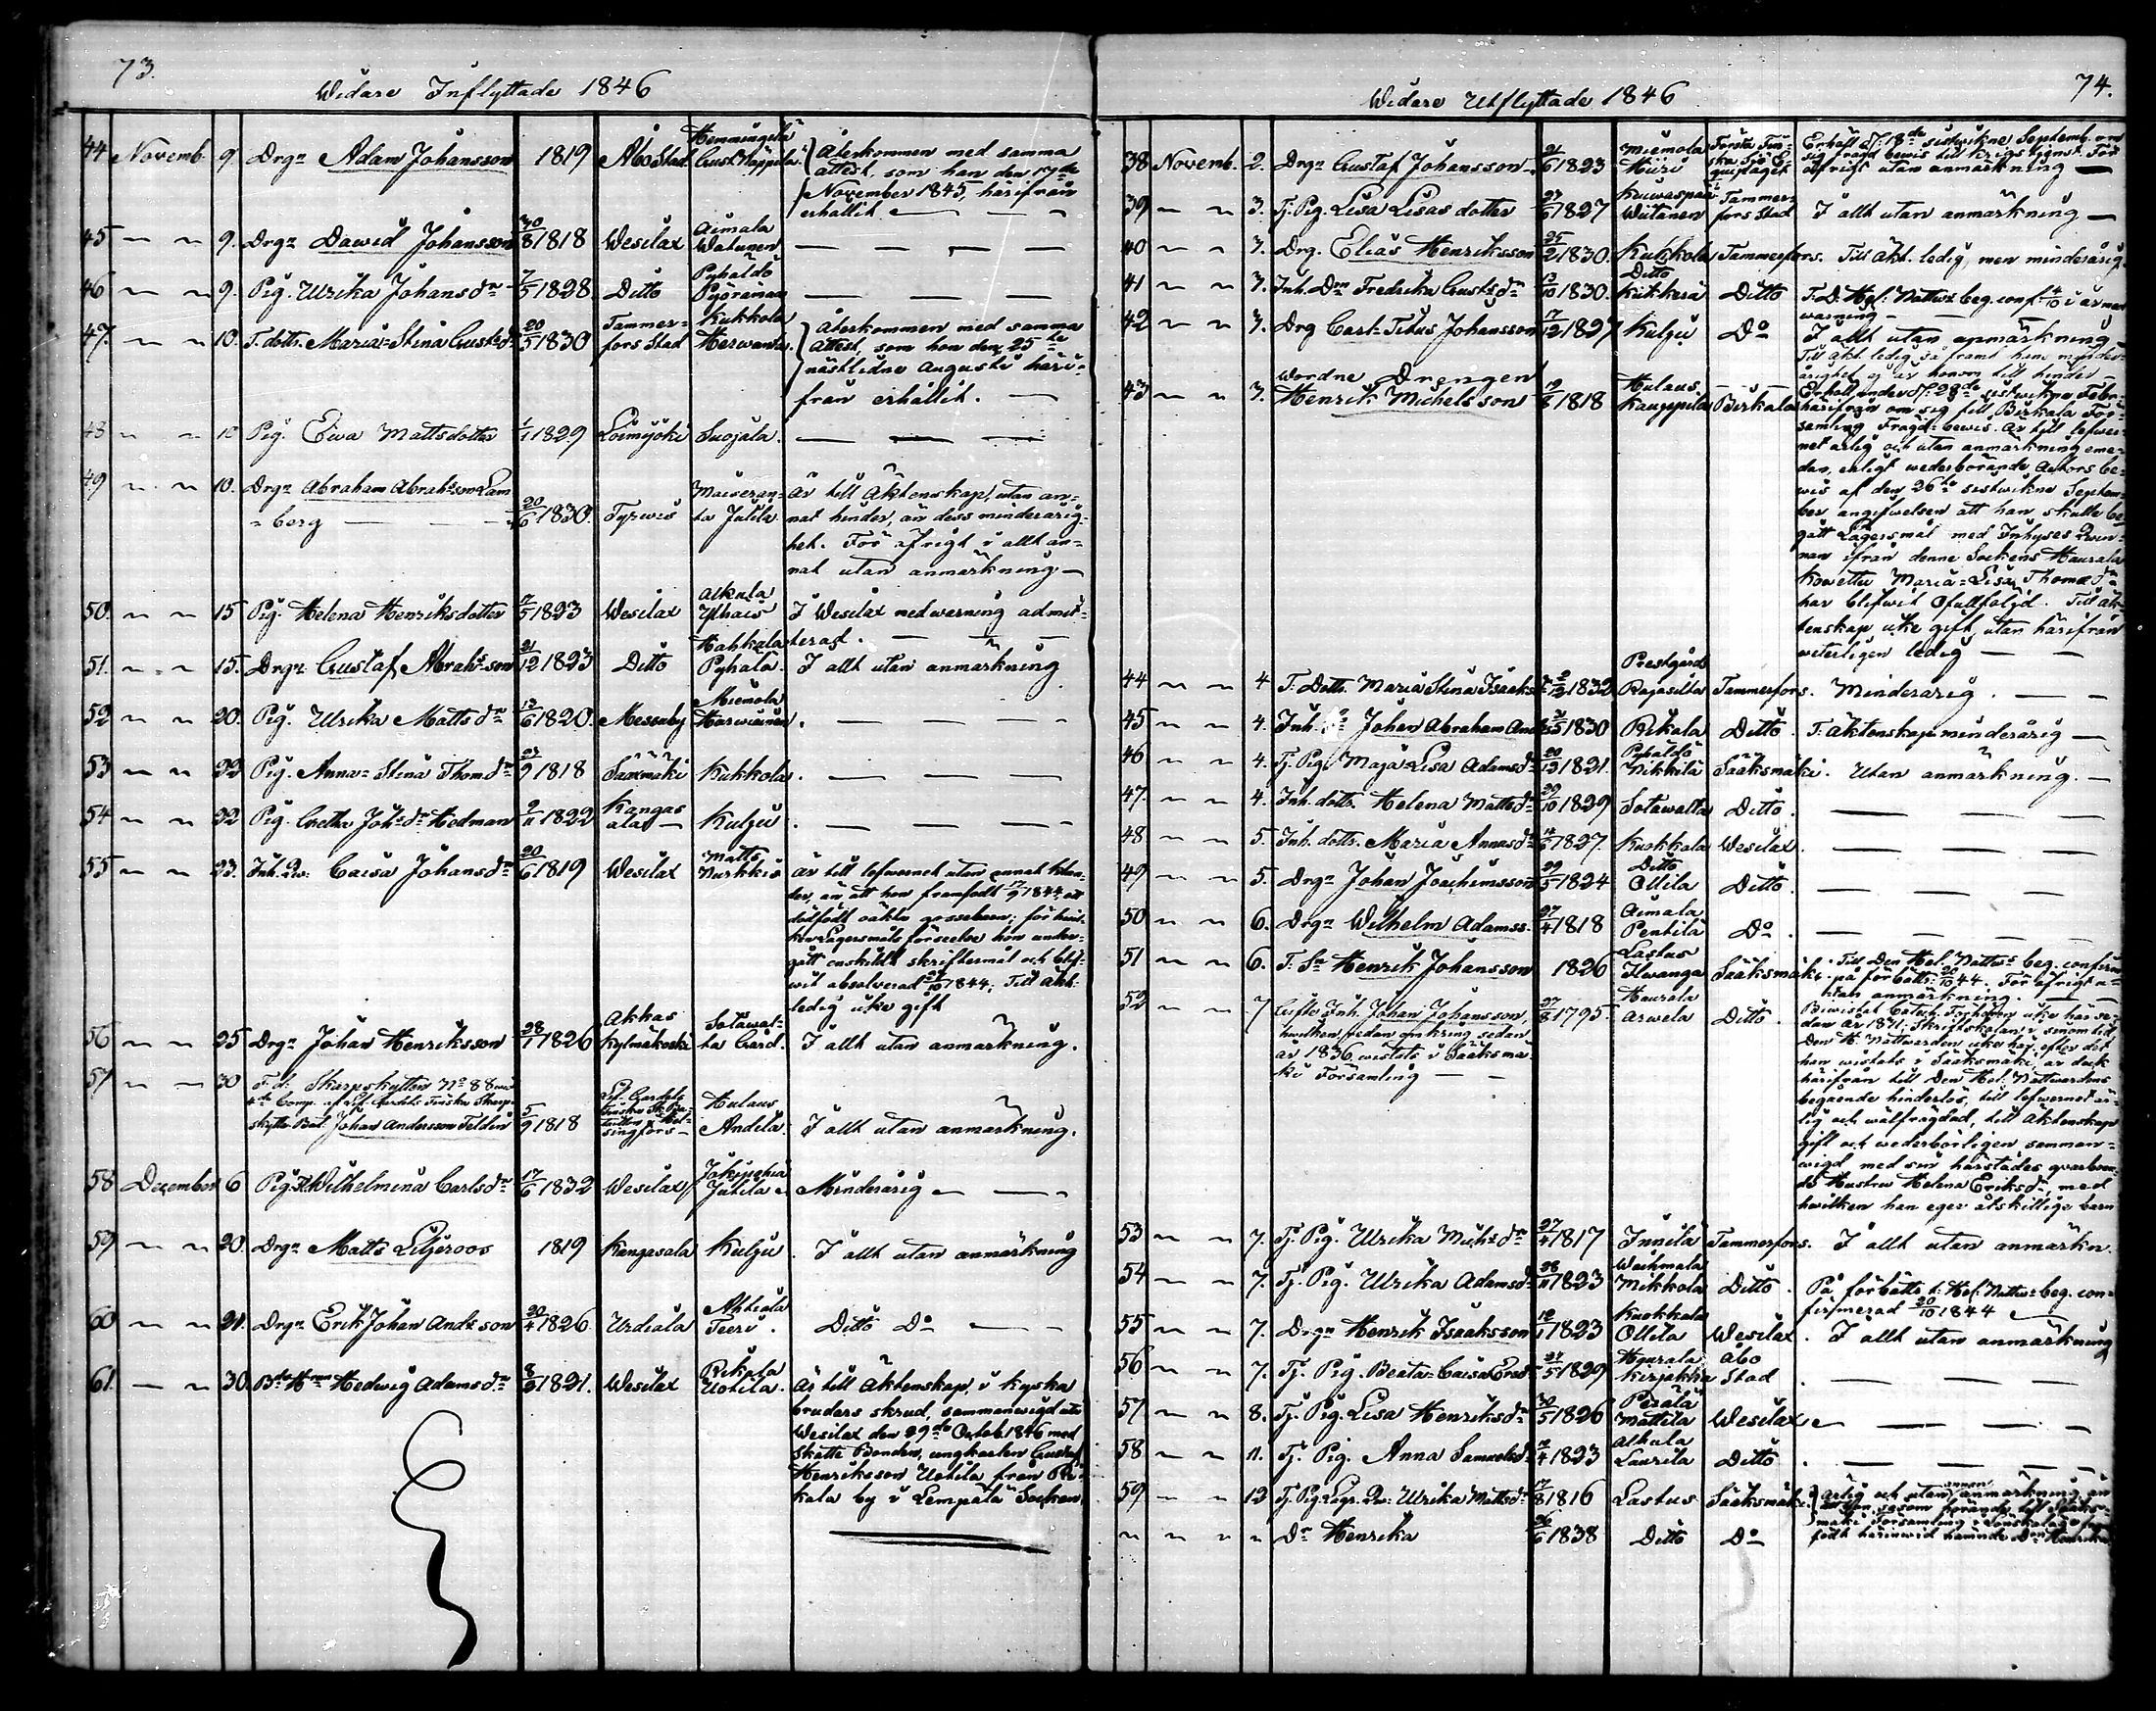 73.
Widare Inflyttade 1846
44 Novemb. 9. Drgn Adam Johansson 1819 Åbo Stad Hemmingsla Gust Näppilä Återkommen med samma
attest, som han den 17de
November 1845, härifrån
erhållit
45 9. Drgn Dawid Johansson 30/8 1818 Wesilax Aimala Watunen
46 9. Pig. Ulrika Johansdr 7/5 1828 Ditto Pyhäldö Pyöränän
47. 10. T. dottr. Maria Stina Gustsdr 20/5 1830 Tammerfors Stad Kukkola Herwanta Återkommen med samma
attest, som hon den 25te
nästledne Augusti häri-
från erhållit.
48 10 Pig. Ewa Mattsdotter 1/1 1829 Loimijoki Suojala.
49 10. Drgn Abraham Abrahsson Lam-
berg 20/6 1830. Tyrwis Maiseranta Jutila. Är till Äktenskap, utan an-
nat hinder, än dess minderårig-
het. För öfrigt i allt an-
nat utan anmärkning
50. 15 Pig. Helena Henriksdotter 7/5 1823 Wesilax Alkula Ylhäis I Wesilax nedwarning admit-
terad.
51. 15. Drgn Gustaf Abrahsson 21/12 1823 Ditto Hahkala Pyhälä. I allt utan anmärkning
52 20. Pig. Ulrika Mattsdr 13/6 1820. Messuby Miemola Harwiainen
53 22 Pig. Anna Stina Thomdr 23/9 1818 Sääxmäki Kukkola.
54 22 Pig. Gretha Johsdr Hedman 2/11 1822 Kangasala Kulju
55 23. Inh. Qv: Caisa Johansdr 20/6 1819 Wesilax Matts Nurkkis Är till lefwernet utan annat hin-
der, än att hon framfödt 17/9 1844, ett
dödfödt oäkta gossebarn; för hwil-
ken Lägersmåls förseelse hon under-
gått enskildt skriftermål och blif-
wit absolverad 27/10 1844; Till Äkt.
ledig icke gift
56 25 Drgn Johan Henriksson 28/1 1826 Akkas Kylmäkoski Sotawalta Gård. I allt utan anmärkning.
57 30 F. d: Skarpskytten No 88 wid
4de Comp. af Lif-Gardets Finska Skarp-
skytte Bat. Johan Andersson Feldin 5/9 1818 Helsingfors Hulaus Andila. I allt utan anmärkning.
58 December 6 Pig. Wilhelmina Carlsdr 17/6 1832 Wesilax Jokipohja Jutila Minderårig
59 20. Drgn Matts Liljeroos 1819 Kangasala Kulju. I allt utan anmärkning
60 21. Drgn Erik Johan Andsson 20/4 1826. Urdiala Ahtiala Teeri. Ditto Do
61. 30. Hedwig Adamsdr 8/2 1821. Wesilax Rikala Uotila. Är till Äktenskap, i kyska
bruders skrud, sammanwigd uti
Wesilax den 29de Octob. 1846 med
Skatte Bonden, ungkarlen Gustaf
Henriksson Uotila från Ri-
kala by i Lempälä Socken.
Widare Utflyttade 1846
74.
38 Novemb. 2. Drgn Gustaf Johansson 21/6 1823 Miemola Huiri Första Finska Sjö Equipaget Erhöll d. 18de sistwikne Septemb. om
sig frägd bewis till krigstjenst. För
öfrigt utan anmärkning
39 3. Tj. Pig. Lisa Lisas dotter 23/6 1827 Kuiwaspää Wiitanen Tammerfors Stad I allt utan anmärkning
40 3. Drg. Elias Henriksson 25/2 1830. Kukkola Tammerfors. Till Äkt. ledig, men minderårig
41 3. Inh. Dr Fredrika Gustsdr 13/10 1830. Ditto Kuhkarä Ditto T. D. Hel: Nattw: beg. conf. 4/10 i år
warning
42 3. Drg Carl-Titus Johansson 17/12 1827 Kulju Do I allt utan anmärkning
Till Äkt. ledig, så framt hans minder-
årighet ej är honom till hinder
43 3. wordne Drengen
Henrik Michelsson 19/8 1818 Hulaus Kauppila Birkala Erhöll under d. 28de sistwikne Febr.
härifrån om sig till Birkala För-
samling Frägd-bewis. Är till lefwer-
net ärlig och utan anmärkning eme-
dan, enligt wederbörande Actors be-
wis af den 26te sistwikne Septem-
ber angifwelsen att han skulle be-
gått Lägersmål med Inhyses Qwin-
nan ifrån denne Sockens Haurala
Kowettu Maria-Lisa Thomædr
har blifwit Ofullföljd. Till Äk-
tenskap icke gift, utan härifrån
weterligen ledig
44 4 T. Dottr. Maria Stina Isaaksdr 2/12 1832 Prestgårds Rajasilta Tammerfors. Minderårig.
45 4. Inh. Johan Abraham 1830 Rikala Ditto. T. Äktenskap minderårig
46 4. Tj. Pig. Maja Lisa Adamsdr 20/12 1821. Pyhäldö Nikkilä Sääksmäki. Utan anmärkning.
47. 4. Inh. dottr. Helena Mattsdr 29/10 1829 Sotawalta Ditto.
48 5. Inh. dottr. Maria Annasdr 14/6 1827. Kuokkala Wesilax.
49 5. Drgn Johan Joachimsson 29/5 1824 Ditto Ollila Ditto.
50 6. Drgn Wilhelm Adamss. 27/4 1818 Aimala Pentilä Do
51 6. T. Sn Henrik Johansson 1826 Lastus Ilwanga Sääksmäki. Till Den Hel. Nattws beg. confirm.
på förbättr. 20/10 44. För öfrigt u-
tan anmärkning.
52 7 Gifte Inh. Johan Johansson,
hwilken redan omkring sedan
år 1836, wistats i Sääksmä-
ki Församling 27/8 1795. Haurala Arwela Ditto. Biwistat Catech. Förhören icke här se-
dan år 1841. Skriftskolan i sinom tid.
Den H. Nattwarden icke här, efter det
han wistats i Sääksmäki; är dock
härifrån till Den Hel: Nattwardens
begående hinderlös, till lefwernet är-
lig och wälfrägdad, till Äktenskap
gift och wederbörligen samman-
wigd med sin härstädes qvarboen-
de Hustru Helena Eriksdr, med
hwilken han eger åtskillige barn
53 7. Tj. Pig. Ulrika Michsdr 27/4 1817 Innilä Tammerfors. I allt utan anmärkn.
54 7. Tj. Pig. Ulrika Adamsdr 28/11 1823 Waihmala Mikkola Ditto. På förbättr. t. Hel. Nattws beg. con-
firmerad 20/10 1844
55 7. Drgn Henrik Isaaksson 12/1 1823 Kuokkala Ollila Wesilax. I allt utan anmärkning
56 7. Tj. Pig. Beata-Caisa Ersdr 27/5 1829 Haurala Kirjakka Åbo Stad
57 8. Tj. Pig. Lisa Henriksdr 30/5 1826 Perälä Mattila Wesilax
58 11. Tj. Pig. Anna Samuelsdr 12/4 1823 Alkula Laurila Ditto
59 12 Tj. Pig. Lägr. Qv: Ulrika Mattsdr 17/8 1816 Lastus Sääksmäki. Ärlig och utan annan anmärkning, än
att hon såsom hörande till Sääks-
mäki Församling i Lönskaläge fram-
födt härinwid nämnde Dr Henrika
Dr Henrika 26/6 1838 Ditto Do